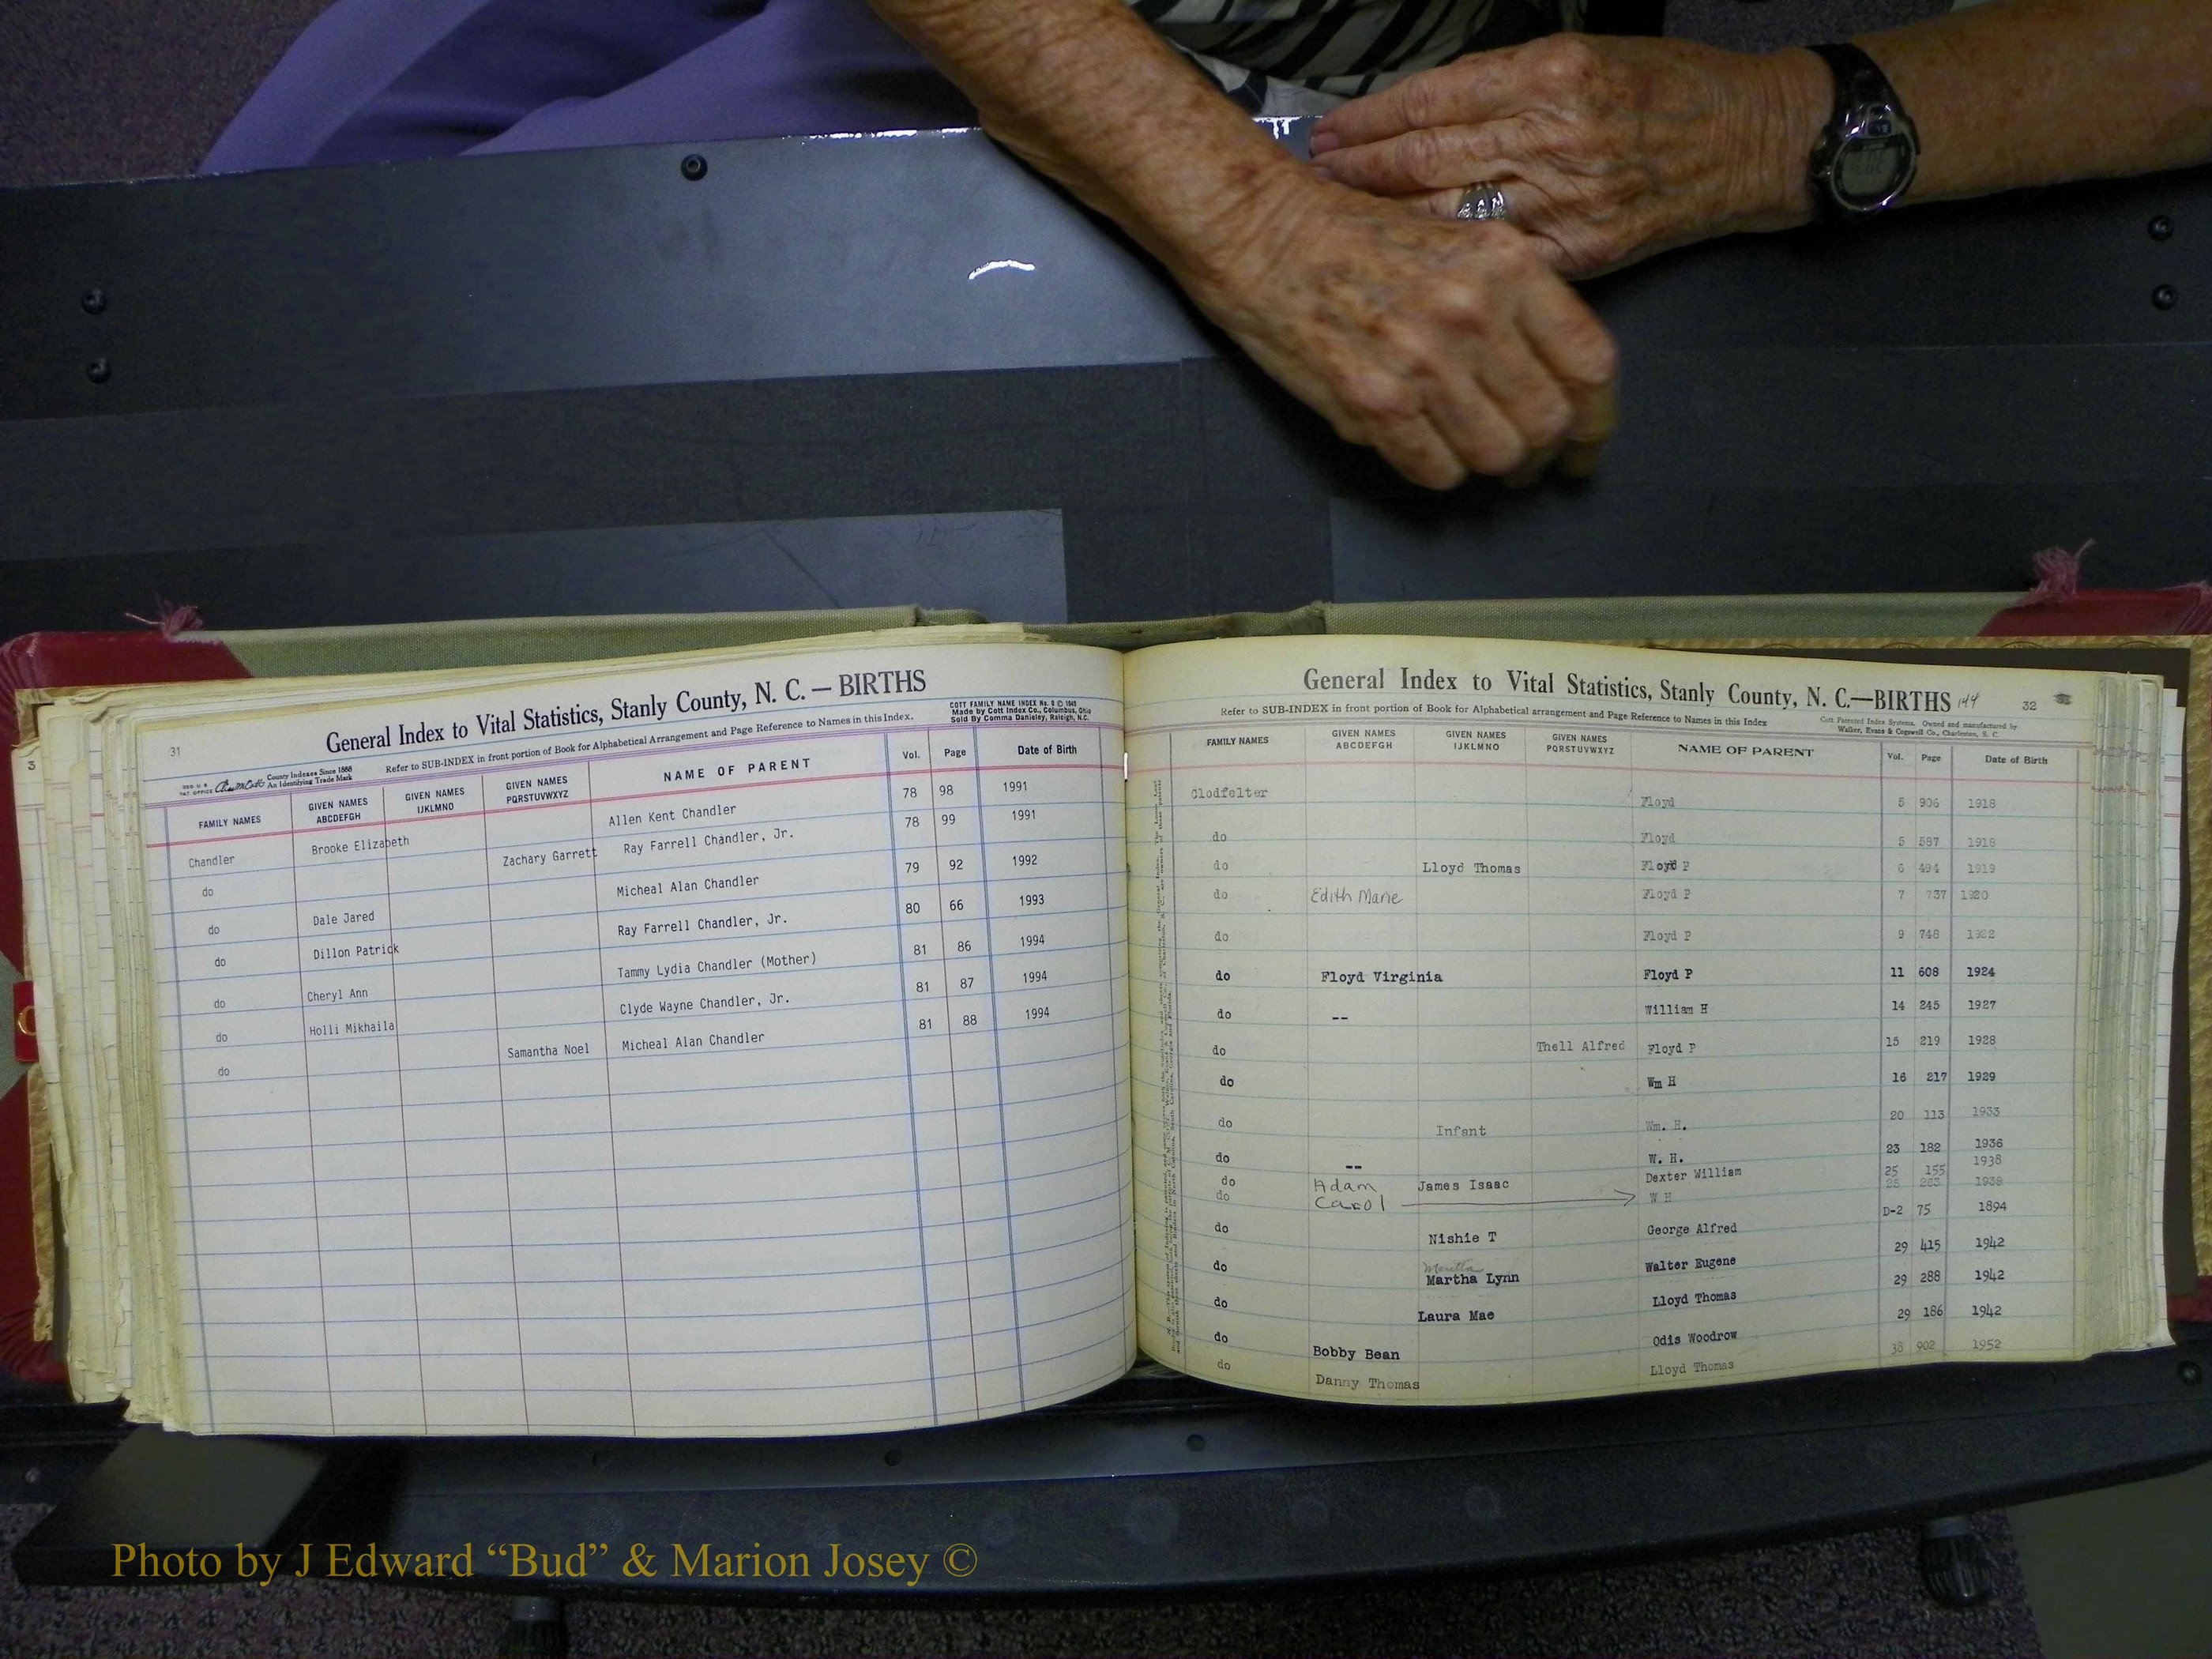 31
General Index to Vital Statistics, Stanly County, N. C. — BIRTHS
COTT FAMILY NAME INDEX No. 8 © 1949
Made by Cott Index Co., Columbus, Ohio
Sold By Comma Danieley, Raleigh, N.C.
County Indexes Since 1888
An Identifying Trade Mark
Refer to SUB-INDEX in front portion of Book for Alphabetical Arrangement and Page Reference to Names in this Index.
FAMILY NAMES GIVEN NAMES ABCDEFGH GIVEN NAMES IJKLMNO GIVEN NAMES PQRSTUVWXYZ NAME OF PARENT Vol. Page Date of Birth
Chandler Brooke Elizabeth Allen Kent Chandler 78 98 1991
do Zachary Garrett Ray Farrell Chandler, Jr. 78 99 1991
do Dale Jared Micheal Alan Chandler 79 92 1992
do Dillon Patrick Ray Farrell Chandler, Jr. 80 66 1993
do Cheryl Ann Tammy Lydia Chandler (Mother) 81 86 1994
do Holli Mikhaila Clyde Wayne Chandler, Jr. 81 87 1994
do Samantha Noel Micheal Alan Chandler 81 88 1994
General Index to Vital Statistics, Stanly County, N. C.—BIRTHS 144 32
Refer to SUB-INDEX in front portion of Book for Alphabetical arrangement and Page Reference to Names in this Index
Cott Patented Index Systems. Owned and manufactured by
Walker, Evans & Cogswell Co., Charleston, S. C.
FAMILY NAMES GIVEN NAMES ABCDEFGH GIVEN NAMES IJKLMNO GIVEN NAMES PQRSTUVWXYZ NAME OF PARENT Vol. Page Date of Birth
Clodfelter Floyd 5 906 1918
do Floyd 5 587 1918
do Lloyd Thomas Floyd P 6 494 1919
do Edith Marie Floyd P 7 737 1920
do Floyd P 9 748 1922
do Floyd Virginia Floyd P 11 608 1924
do -- William H 14 245 1927
do Thell Alfred Floyd P 15 219 1928
do Wm H 16 217 1929
do Infant Wm. H. 20 113 1933
do -- W. H. 23 182 1936
do Adam James Isaac Dexter William 25 155 1938
do Carol W H 25 263 1938
do Nishie T George Alfred D-2 75 1894
do Martha Lynn Walter Eugene 29 415 1942
do Laura Mae Lloyd Thomas 29 288 1942
do Bobby Bean Odis Woodrow 29 186 1942
do Danny Thomas Lloyd Thomas 38 902 1952
Photo by J Edward “Bud” & Marion Josey ©